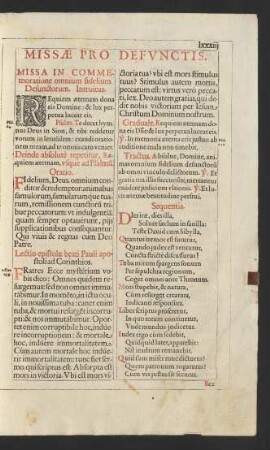 lxxxiij
MISSÆ PRO DEFVNCTIS.
MISSA IN COMME-
moratione omnium fidelium
Defunctorum. Introitus.
REquiem æternam dona
eis Domine: & lux per-
petua luceat eis.
Psalm. Te decet hym-
nus Deus in Sion, & tibi reddetur
votum in Ierusalem: exaudi oratio-
nem meam, ad te omnis caro veniet.
Deinde absolutè repetitur, Re-
quiem æternam, vsque ad Psalmū.
Oratio.
FIdelium, Deus, omnium con-
ditor & redemptor, animabus
famulorum, famularumque tua-
rum remissionem cunctorum tri-
bue peccatorum: vt indulgentiā,
quam semper optauerunt, piis
supplicationibus consequantur.
Qui viuis & regnas cum Deo
Patre.
Lectio epistolæ beati Pauli apo-
stoli ad Corinthios.
FRatres: Ecce mysterium vo-
bis dico: Omnes quidem re-
surgemus: sed non omnes immu-
tabimur. In momēto, in ictu ocu-
li, in nouissima tuba: canet enim
tuba, & mortui resurgent incor-
rupti: & nos immutabimur. Opor-
tet enim corruptibile hoc, induere
incorruptionem: & mortale hoc,
induere immortalitatem. Cùm
autem mortale hoc induerit im-
mortalitatem: tunc fiet ser-
mo qui scriptus est. Absorpta est
mors in victoria. Vbi est mors vi-
ctoria tua? vbi est mors stimulus
tuus? Stimulus autem mortis,
peccatum est: virtus verò pecca-
ti, lex. Deo autem gratias, qui de-
dit nobis victoriam per Iesum
Christum Dominum nostrum.
Graduale. Requiem æternam do-
na eis Dñe: & lux perpetua luceat eis.
℣. In memoria æterna erit iustus: ab
auditione mala non timebit.
Tractus. Absolue, Domine, ani-
mas omnium fidelium defunctorū
ab omni vinculo delictorum. ℣. Et
gratia tua illis succurrente, mereantur
euadere iudicium vltionis. ℣. Et lu-
cis æternæ beatitudine perfrui.
Sequentia.
DIes iræ, dies illa,
Soluet sæclum in fauilla:
Teste Dauid cum Sibylla.
Quantus tremor est futurus,
Quando iudex est venturus,
Cuncta strictè discussurus!
Tuba mirum spargens sonum
Per sepulchra regionum,
Coget omnes ante Thronum.
Mors stupebit, & natura,
Cùm resurget creatura,
Iudicanti responsura.
Liber scriptus proferetur,
In quo totum continetur,
Vnde mundus iudicetur.
Iudex ergo cùm sedebit,
Quidquid latet, apparebit:
Nil inultum remanebit.
Quid sum miser tunc dicturus?
Quem patronum rogaturus?
Cùm vix iustus sit securus.